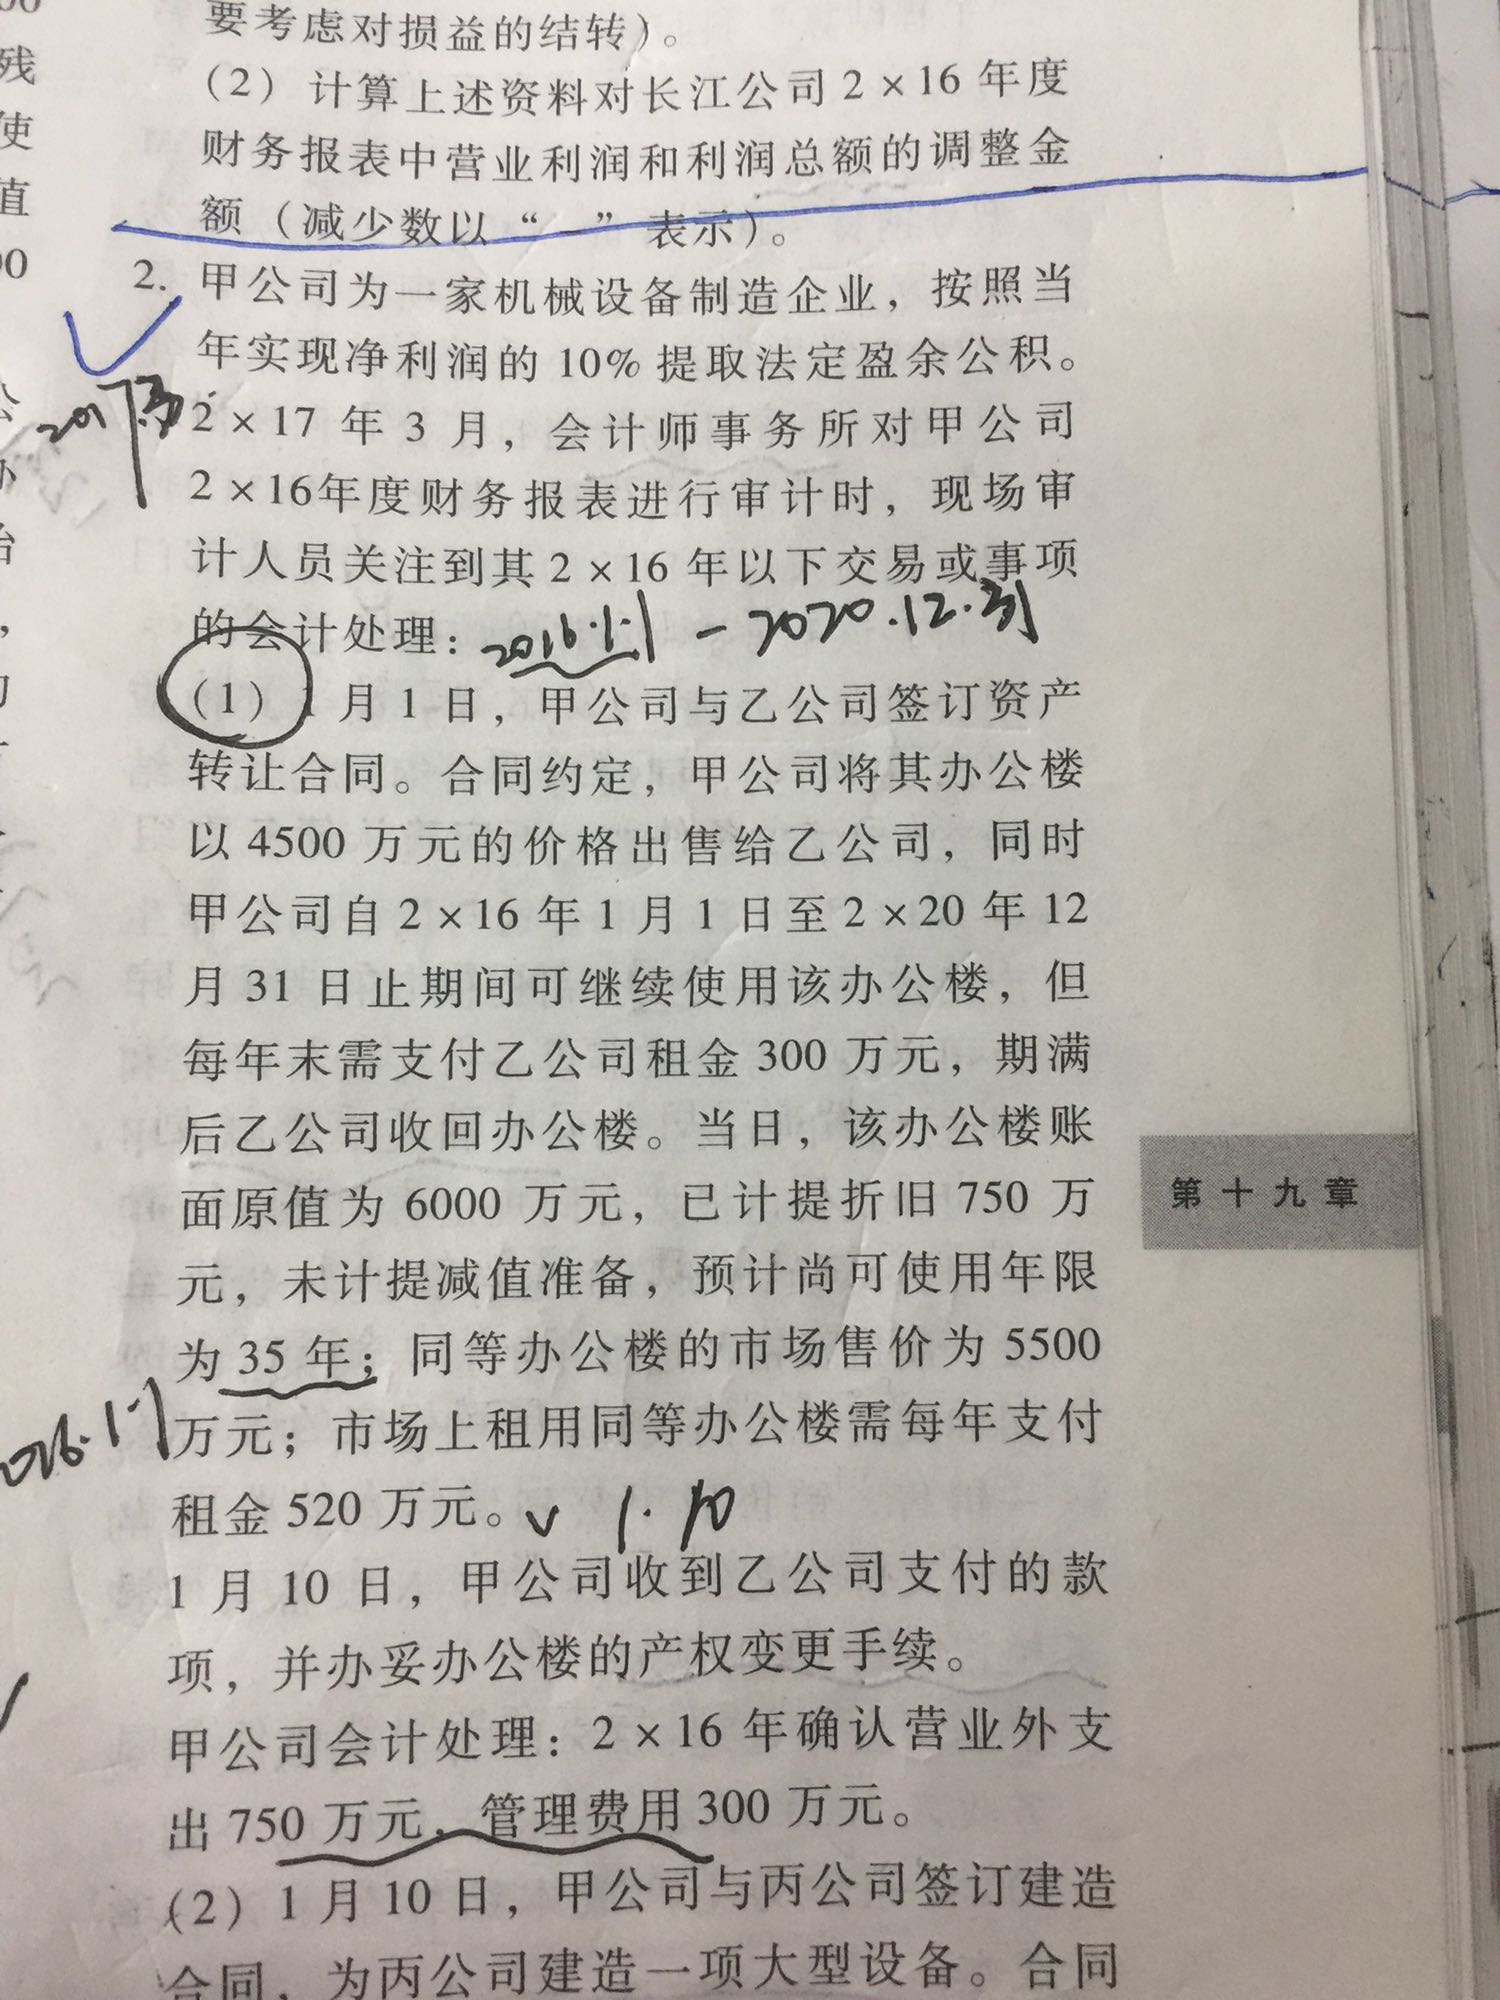 要考虑对损益的结转）。
（2）计算上述资料对长江公司 2×16 年度
财务报表中营业利润和利润总额的调整金
额（减少数以“－”表示）。
2. 甲公司为一家机械设备制造企业，按照当
年实现净利润的 10% 提取法定盈余公积。
2×17 年 3 月，会计师事务所对甲公司
2×16年度财务报表进行审计时，现场审
计人员关注到其 2×16 年以下交易或事项
的会计处理：
2016.1.1 - 2020.12.31
（1）1 月 1 日，甲公司与乙公司签订资产
转让合同。合同约定，甲公司将其办公楼
以 4500 万元的价格出售给乙公司，同时
甲公司自 2×16 年 1 月 1 日至 2×20 年 12
月 31 日止期间可继续使用该办公楼，但
每年末需支付乙公司租金 300 万元，期满
后乙公司收回办公楼。当日，该办公楼账
面原值为 6000 万元，已计提折旧 750 万
元，未计提减值准备，预计尚可使用年限
为 35 年；同等办公楼的市场售价为 5500
万元；市场上租用同等办公楼需每年支付
租金 520 万元。
1.10
1 月 10 日，甲公司收到乙公司支付的款
项，并办妥办公楼的产权变更手续。
甲公司会计处理：2×16 年确认营业外支
出 750 万元，管理费用 300 万元。
（2）1 月 10 日，甲公司与丙公司签订建造
合同，为丙公司建造一项大型设备。合同
第十九章